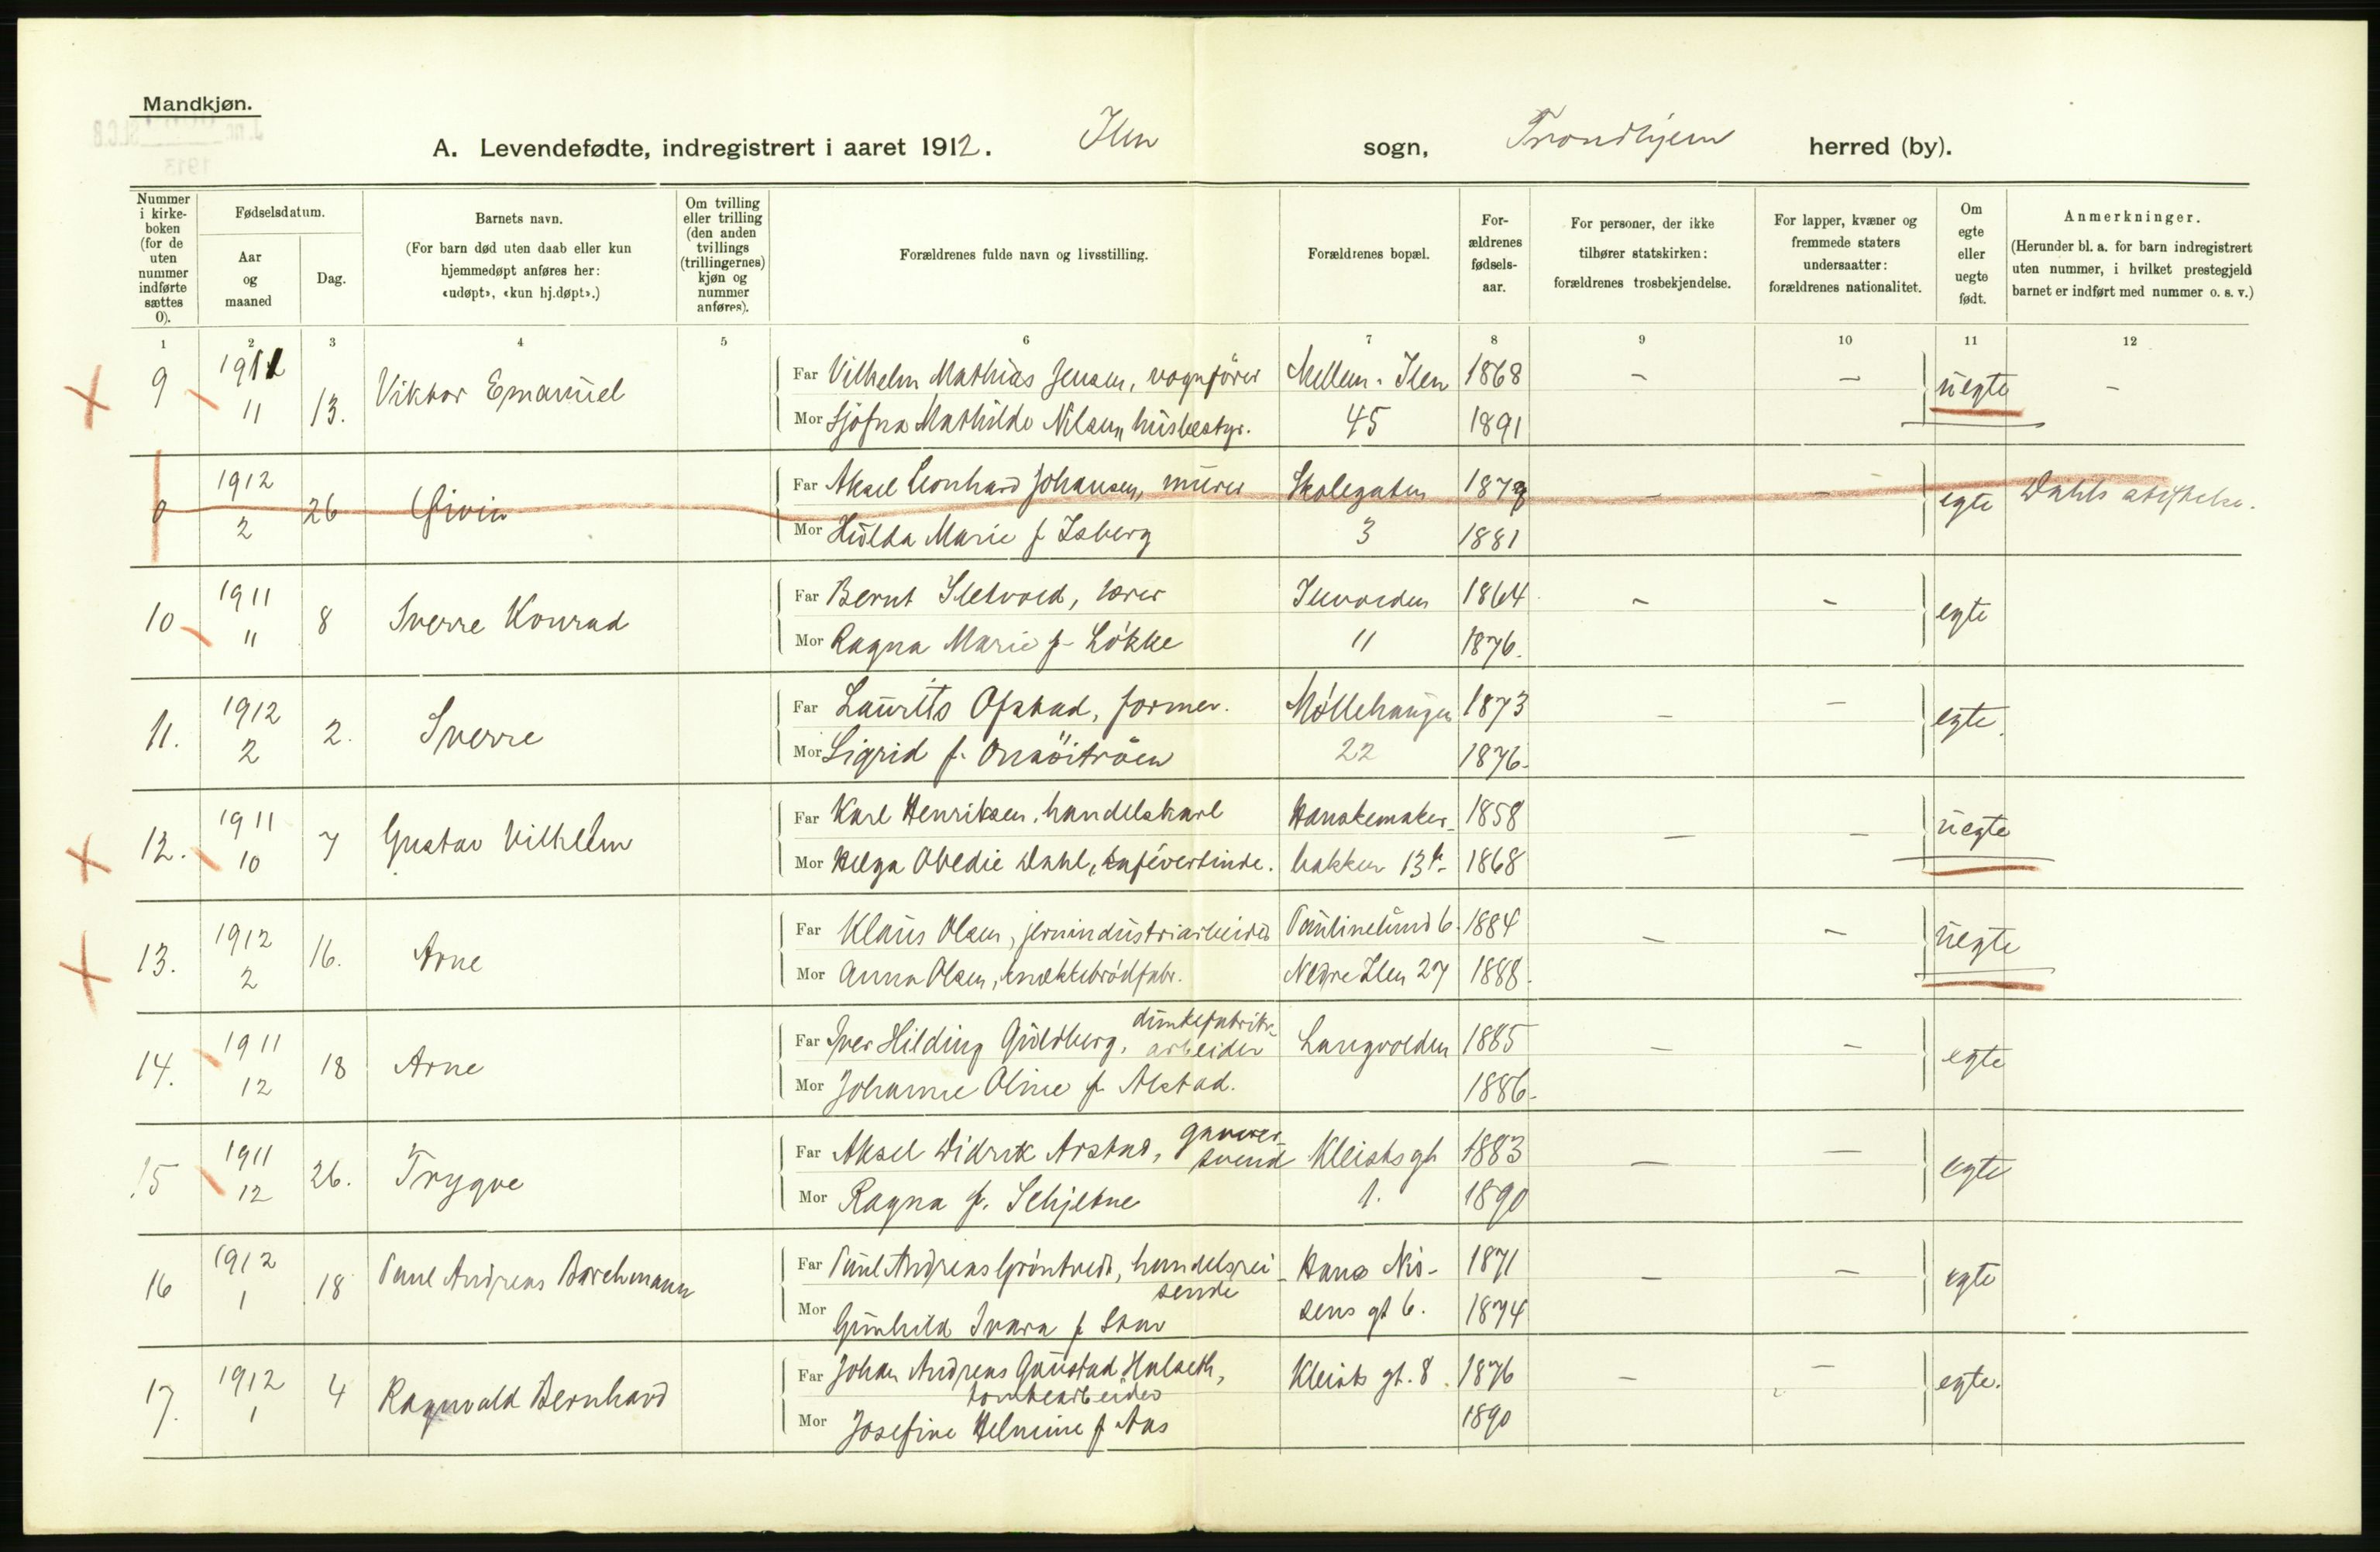 Mandkjøn.
A. Levendefødte, indregistrert i aaret 1912. Ilen sogn, Trondhjem herred (by).
Nummer i kirkeboken (for de uten nummer indførte sættes 0).
Fødselsdatum.
Aar og maaned
Dag.
Barnets navn.
(For barn død uten daab eller kun hjemmedøpt anføres her: «udøpt», «kun hj.døpt».)
Om tvilling eller trilling (den anden tvillings (trillingernes) kjøn og nummer anføres).
Forældrenes fulde navn og livsstilling.
Forældrenes bopæl.
For-ældrenes fødsels-aar.
For personer, der ikke tilhører statskirken: forældrenes trosbekjendelse.
For lapper, kvæner og fremmede staters undersaatter: forældrenes nationalitet.
Om egte eller uegte født.
Anmerkninger.
(Herunder bl. a. for barn indregistrert uten nummer, i hvilket prestegjeld barnet er indført med nummer o. s. v.)
1 2 3 4 5 6 7 8 9 10 11 12
9 1911 11 13. Viktor Emanuel
Far Vilhelm Mathias Jensen, vognfører Mellem-Ilen 1868 – – uegte –
Mor Sjøfna Mathilde Nilsen, husbestyr. 45 1891
0 1912 2 26 Eivin
Far Aksel Leonhard Johansen, murer Skolegaten 1878 – – egte Dahls stiftelse.
Mor Hulda Marie f. Isberg 3 1881
10 1911 11 8 Sverre Konrad
Far Bernt Sletvold, lærer Ilevolden 1864 – – egte
Mor Ragna Marie f. Løkke 11 1876.
11. 1912 2 2. Sverre
Far Laurits Ofstad, former. Møllehaugen 1873 – – egte.
Mor Sigrid f. 22 1876.
12. 1911 10 7 Gustav Vilhelm
Far Karl Henriksen, handelskarl Hanskemaker- 1858 – – uegte
Mor Helga Obedie Dahl, kafévertinde. bakken 13 1868
13. 1912 2 16. Arne
Far Klaus Olsen, jernindustriarbeider Paulinelund 6 1884 – – uegte
Mor Anna Olsen, knækkebrødfabr. Nedre Ilen 27 1888.
14. 1911 12 18 Arne
Far Iver Hilding Guldberg, dunkefabrik-arbeider Langvolden 1885 – – egte
Mor Johanne Oline f. Alstad. 1886.
15 1911 12 26. Trygve
Far Aksel Didrik Arstad, garver-svend Kleists gt 1883 – – egte
Mor Ragna f. Schjetne 1. 1890
16 1912 1 18 Paul Andreas Borchmann
Far Paul Andreas Grøntvedt, handelsrei-sende Hans Nis- 1871 – – egte
Mor Gunhild Ivara f. sens gt 6. 1874
17. 1912 1 4 Ragnvald Bernhard
Far Johan Andreas Gaustad Halseth, tomtearbeider Kleists gt. 8. 1876 – – egte.
Mor Josefine Helmine f. Aas 1890